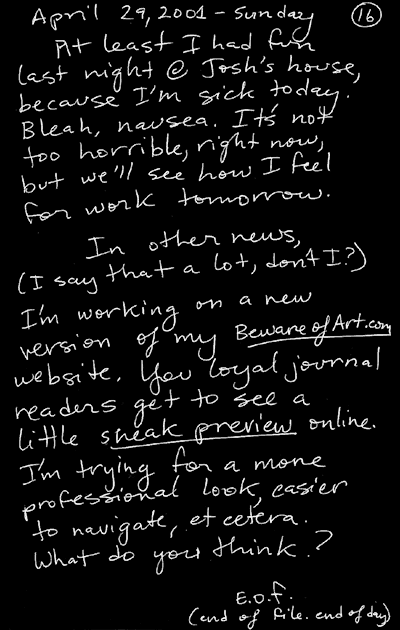 April 29, 2001 - Sunday 16
At least I had fun
last night @ Josh's house,
because I'm sick today.
Bleah, nausea. It's not
too horrible, right now,
but we'll see how I feel
for work tomorrow.
In other news,
(I say that a lot, don't I?)
I'm working on a new
version of my BewareofArt.com
website. You loyal journal
readers get to see a
little sneak preview online.
I'm trying for a more
professional look, easier
to navigate, et cetera.
What do you think?
E.O.f.
(end of file. end of day)